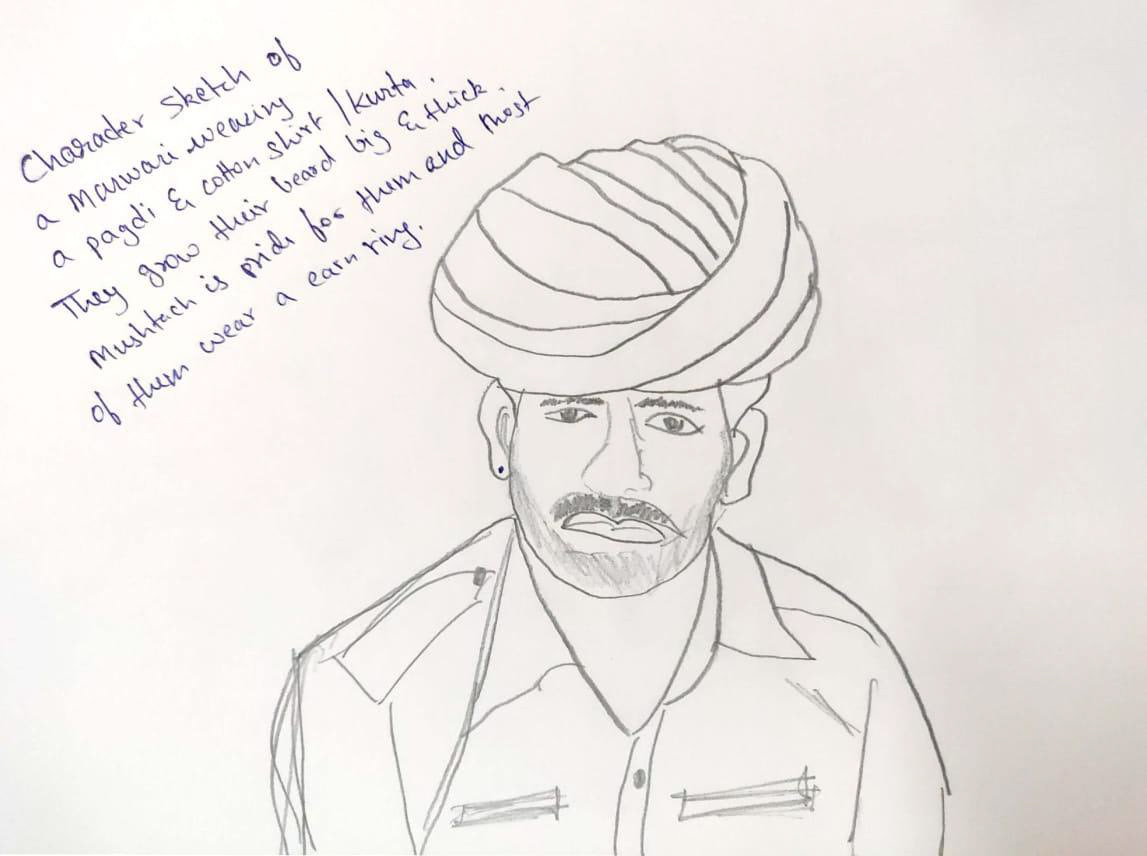 Character Sketch of
a Marwari wearing
a pagdi & cotton shirt / kurta.
They grow their beard big & thick.
Mushtach is pride for them and most
of them wear a earn ring.